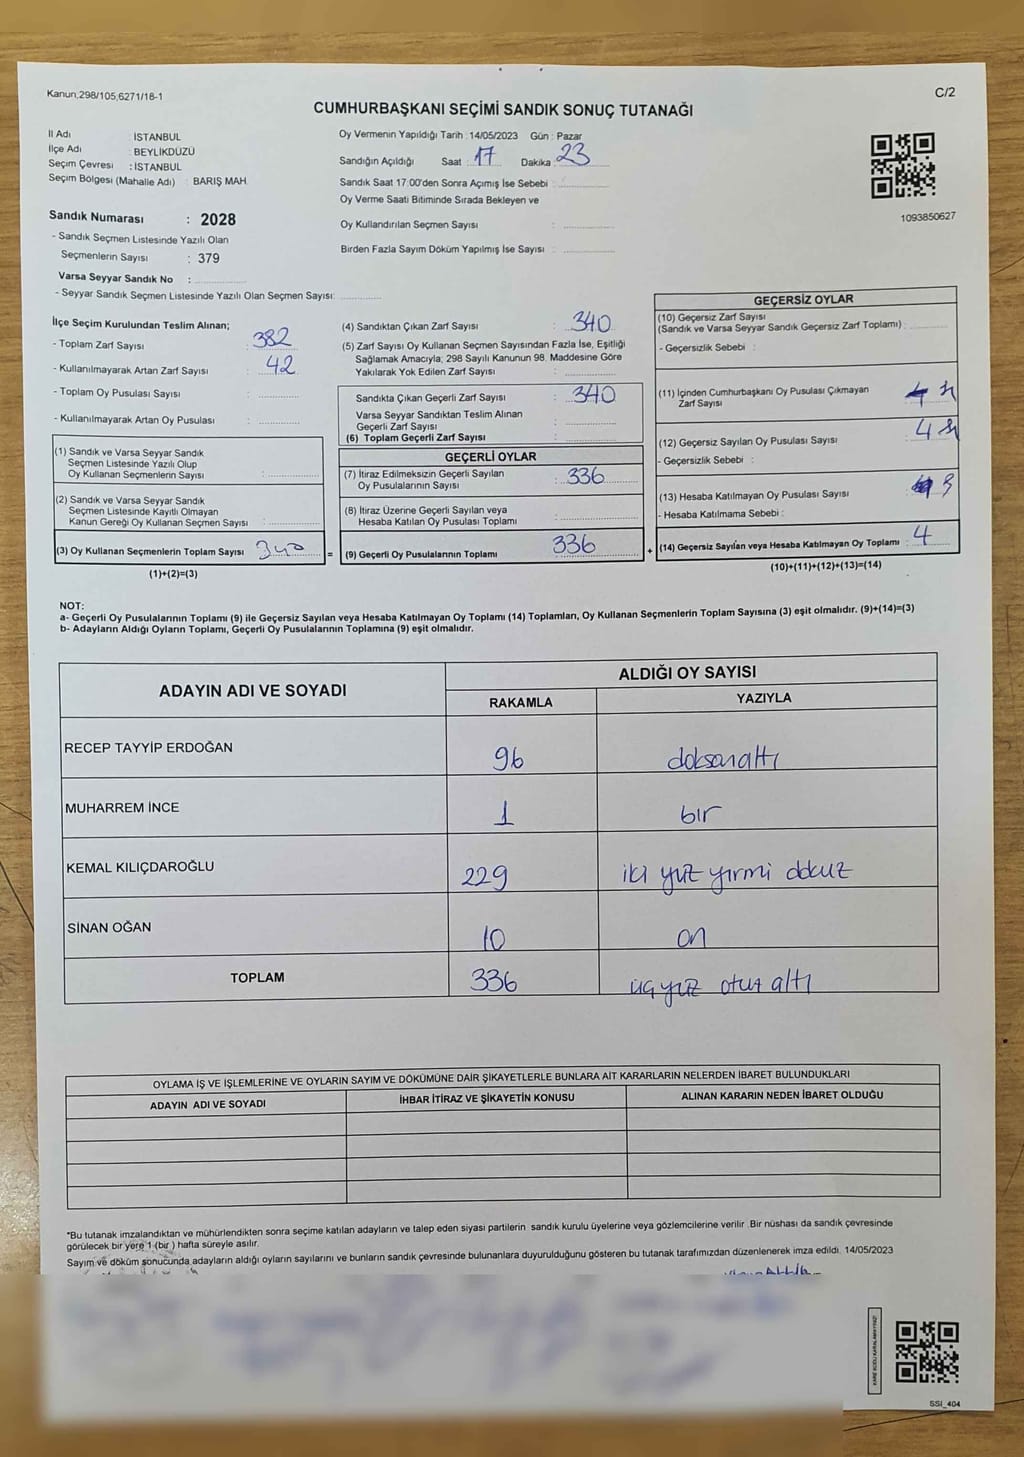 Kanun;298/105,6271/16-1
C/2
CUMHURBAŞKANI SEÇİMİ SANDIK SONUÇ TUTANAĞI
İl Adı : İSTANBUL
İlçe Adı : BEYLİKDÜZÜ
Seçim Çevresi : İSTANBUL
Seçim Bölgesi (Mahalle Adı) : BARIŞ MAH.
Sandık Numarası : 2028
- Sandık Seçmen Listesinde Yazılı Olan
Seçmenlerin Sayısı : 379
Varsa Seyyar Sandık No :
- Seyyar Sandık Seçmen Listesinde Yazılı Olan Seçmen Sayısı:
Oy Vermenin Yapıldığı Tarih : 14/05/2023 Gün : Pazar
Sandığın Açıldığı Saat : 17 Dakika : 23
Sandık Saat 17:00'den Sonra Açımış İse Sebebi :
Oy Verme Saati Bitiminde Sırada Bekleyen ve
Oy Kullandırılan Seçmen Sayısı :
Birden Fazla Sayım Döküm Yapılmış İse Sayısı :
1093850627
İlçe Seçim Kurulundan Teslim Alınan;
- Toplam Zarf Sayısı : 382
- Kullanılmayarak Artan Zarf Sayısı : 42
- Toplam Oy Pusulası Sayısı :
- Kullanılmayarak Artan Oy Pusulası :
(1) Sandık ve Varsa Seyyar Sandık
Seçmen Listesinde Yazılı Olup
Oy Kullanan Seçmenlerin Sayısı :
(2) Sandık ve Varsa Seyyar Sandık
Seçmen Listesinde Kayıtlı Olmayan
Kanun Gereği Oy Kullanan Seçmen Sayısı :
(3) Oy Kullanan Seçmenlerin Toplam Sayısı : 340
(1)+(2)=(3)
=
(4) Sandıktan Çıkan Zarf Sayısı : 340
(5) Zarf Sayısı Oy Kullanan Seçmen Sayısından Fazla İse, Eşitliği
Sağlamak Amacıyla; 298 Sayılı Kanunun 98. Maddesine Göre
Yakılarak Yok Edilen Zarf Sayısı :
Sandıkta Çıkan Geçerli Zarf Sayısı : 340
Varsa Seyyar Sandıktan Teslim Alınan
Geçerli Zarf Sayısı :
(6) Toplam Geçerli Zarf Sayısı :
GEÇERLİ OYLAR
(7) İtiraz Edilmeksizin Geçerli Sayılan
Oy Pusulalarının Sayısı : 336
(8) İtiraz Üzerine Geçerli Sayılan veya
Hesaba Katılan Oy Pusulası Toplamı :
(9) Geçerli Oy Pusulalarının Toplamı : 336
+
GEÇERSİZ OYLAR
(10) Geçersiz Zarf Sayısı
(Sandık ve Varsa Seyyar Sandık Geçersiz Zarf Toplamı) :
- Geçersizlik Sebebi :
(11) İçinden Cumhurbaşkanı Oy Pusulası Çıkmayan
Zarf Sayısı :
(12) Geçersiz Sayılan Oy Pusulası Sayısı : 4
- Geçersizlik Sebebi :
(13) Hesaba Katılmayan Oy Pusulası Sayısı :
- Hesaba Katılmama Sebebi :
(14) Geçersiz Sayılan veya Hesaba Katılmayan Oy Toplamı : 4
(10)+(11)+(12)+(13)=(14)
NOT:
a- Geçerli Oy Pusulalarının Toplamı (9) ile Geçersiz Sayılan veya Hesaba Katılmayan Oy Toplamı (14) Toplamları, Oy Kullanan Seçmenlerin Toplam Sayısına (3) eşit olmalıdır. (9)+(14)=(3)
b- Adayların Aldığı Oyların Toplamı, Geçerli Oy Pusulalarının Toplamına (9) eşit olmalıdır.
ADAYIN ADI VE SOYADI
ALDIĞI OY SAYISI
RAKAMLA YAZIYLA
RECEP TAYYİP ERDOĞAN 96 doksanaltı
MUHARREM İNCE 1 bir
KEMAL KILIÇDAROĞLU 229 iki yüz yirmi dokuz
SİNAN OĞAN 10 on
TOPLAM 336 üç yüz otuz altı
OYLAMA İŞ VE İŞLEMLERİNE VE OYLARIN SAYIM VE DÖKÜMÜNE DAİR ŞİKAYETLERLE BUNLARA AİT KARARLARIN NELERDEN İBARET BULUNDUKLARI
ADAYIN ADI VE SOYADI İHBAR İTİRAZ VE ŞİKAYETİN KONUSU ALINAN KARARIN NEDEN İBARET OLDUĞU
*Bu tutanak imzalandıktan ve mühürlendikten sonra seçime katılan adayların ve talep eden siyasi partilerin sandık kurulu üyelerine veya gözlemcilerine verilir. Bir nüshası da sandık çevresinde
görülecek bir yere 1 (bir ) hafta süreyle asılır.
Sayım ve döküm sonucunda adayların aldığı oyların sayılarını ve bunların sandık çevresinde bulunanlara duyurulduğunu gösteren bu tutanak tarafımızdan düzenlenerek imza edildi. 14/05/2023
KARE KODU KARALAMAYINIZ!
SSI_404